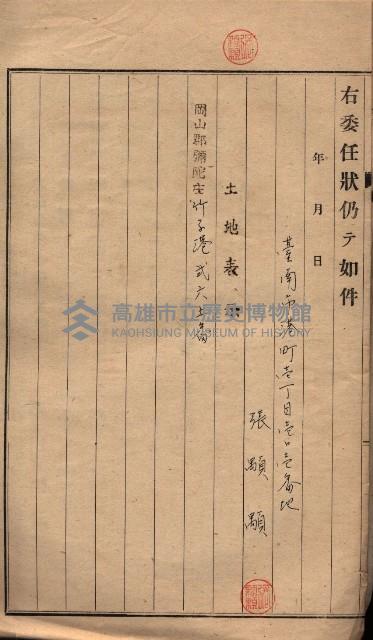 右委任狀仍テ如件
年　月　日
臺南市港町壱丁目壱〇壱番地
張
土地表
岡山郡彌陀庄竹子港弍六
高雄市立歷史博物館
KAOHSIUNG MUSEUM OF HISTORY